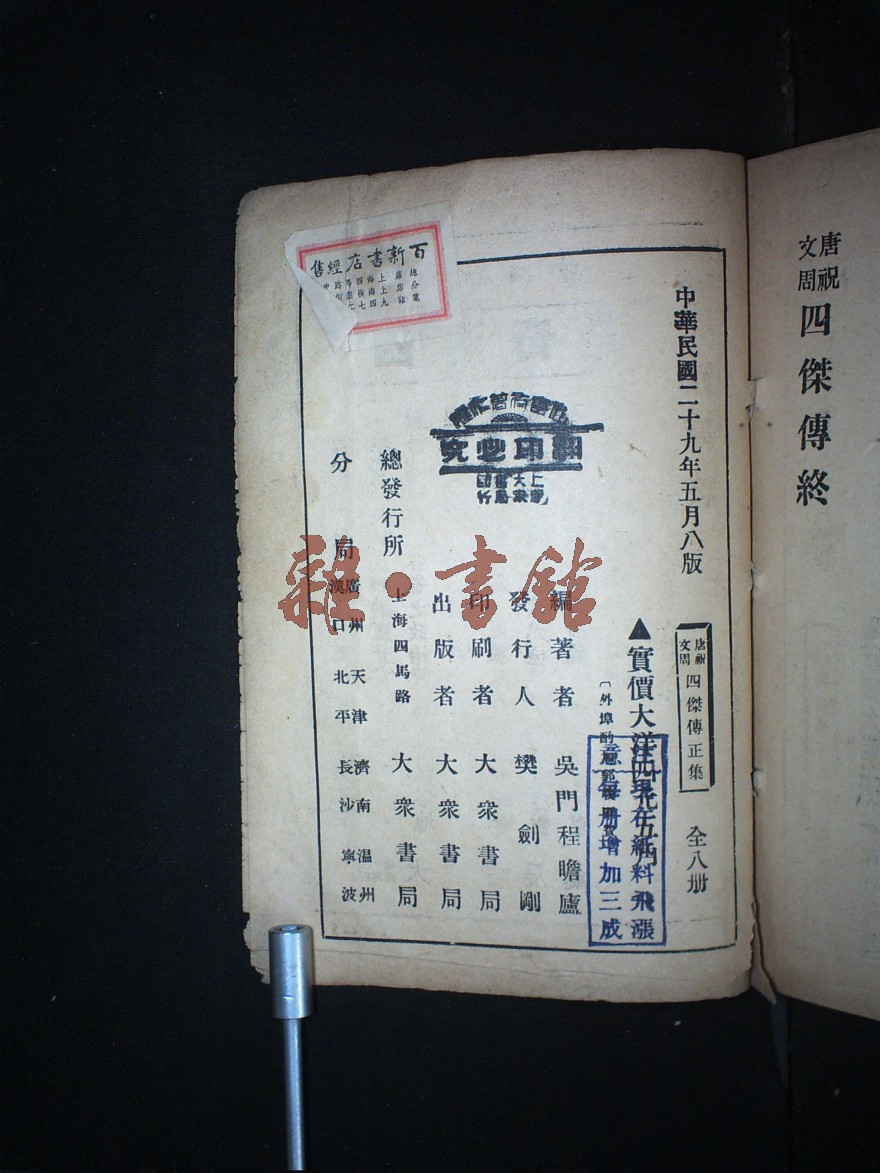 唐祝
文周
四傑傳終
中華民國二十九年五月八版
唐祝
文周
四傑傳正集
全八册
▲實價大洋四元五角
現在紙料飛漲
意每册增加三成
編著者 吳門程瞻廬
發行人 樊劍剛
印刷者 大衆書局
出版者 大衆書局
總發行所 上海四馬路 大衆書局
分局
廣州 天津 濟南 温州
漢口 北平 長沙 寧波
翻印必究
上海
大衆
書局
印行
百新書店經售
雜·書館